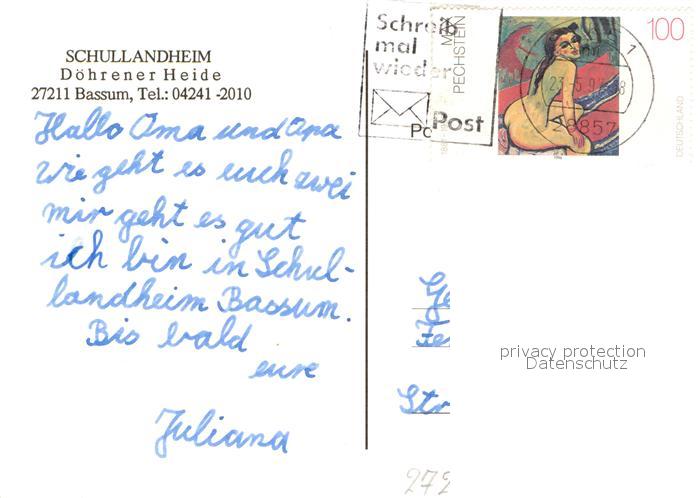 SCHULLANDHEIM
Döhrener Heide
27211 Bassum, Tel.: 04241 -2010
Hallo Oma und Opa
wie geht es euch zwei
mir geht es gut
ich bin in Schul-
landheim Bassum.
Bis bald
eure
Juliana
Schreib
mal
wieder
Post
MAX
PECHSTEIN
100
DEUTSCHLAND
28857
Str
privacy protection
Datenschutz
272